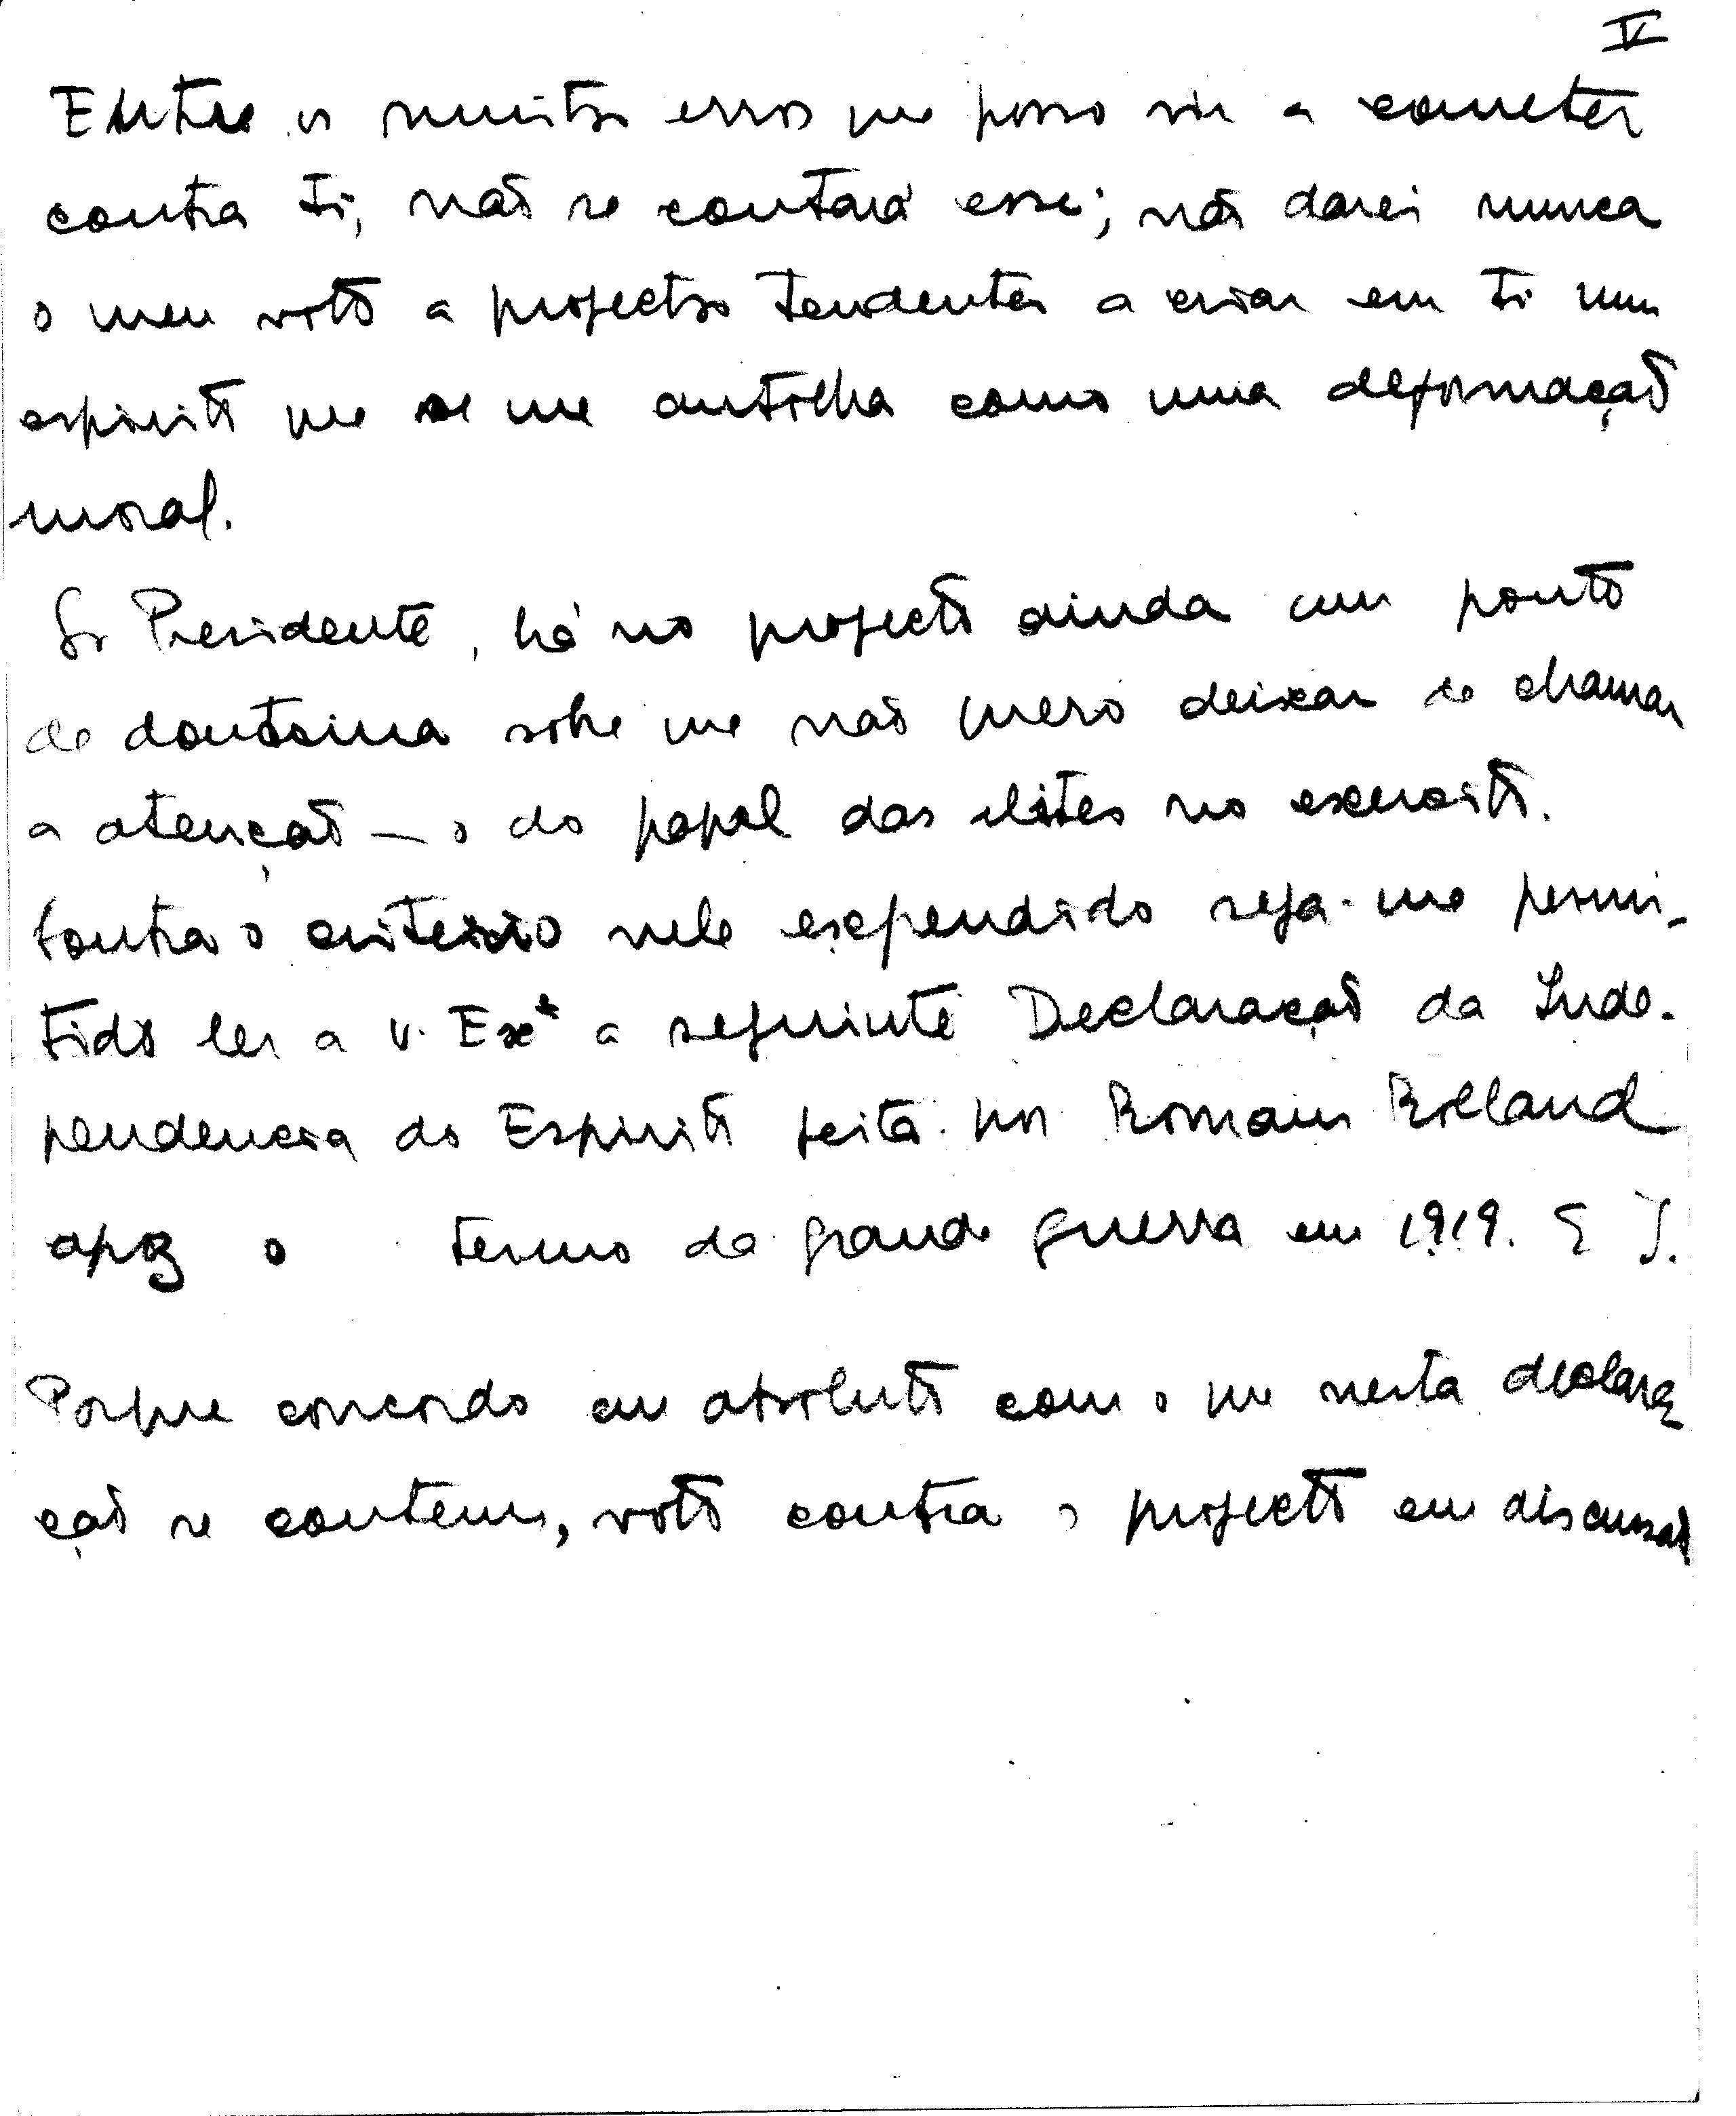 V
Entre os muitos erros que posso vir a cometer
contra ti, não se contará esse; não darei nunca
o meu voto a projectos tendentes a criar em ti um
espirito que se me antolha como uma deformação
moral.
Sr Presidente, há no projecto ainda um ponto
de doutrina sobre que não quero deixar de chamar
a atenção — o do papel das elites no exercito.
Contra o criterio nele expendido seja-me permi-
tido ler a V. Exª a seguinte Declaração da Inde-
pendencia do Espirito feita por Romain Rolland
após o termo da grande guerra em 1919.
Porque concordo em absoluto com o que nesta declara
ção se contem, voto contra o projecto em discussão